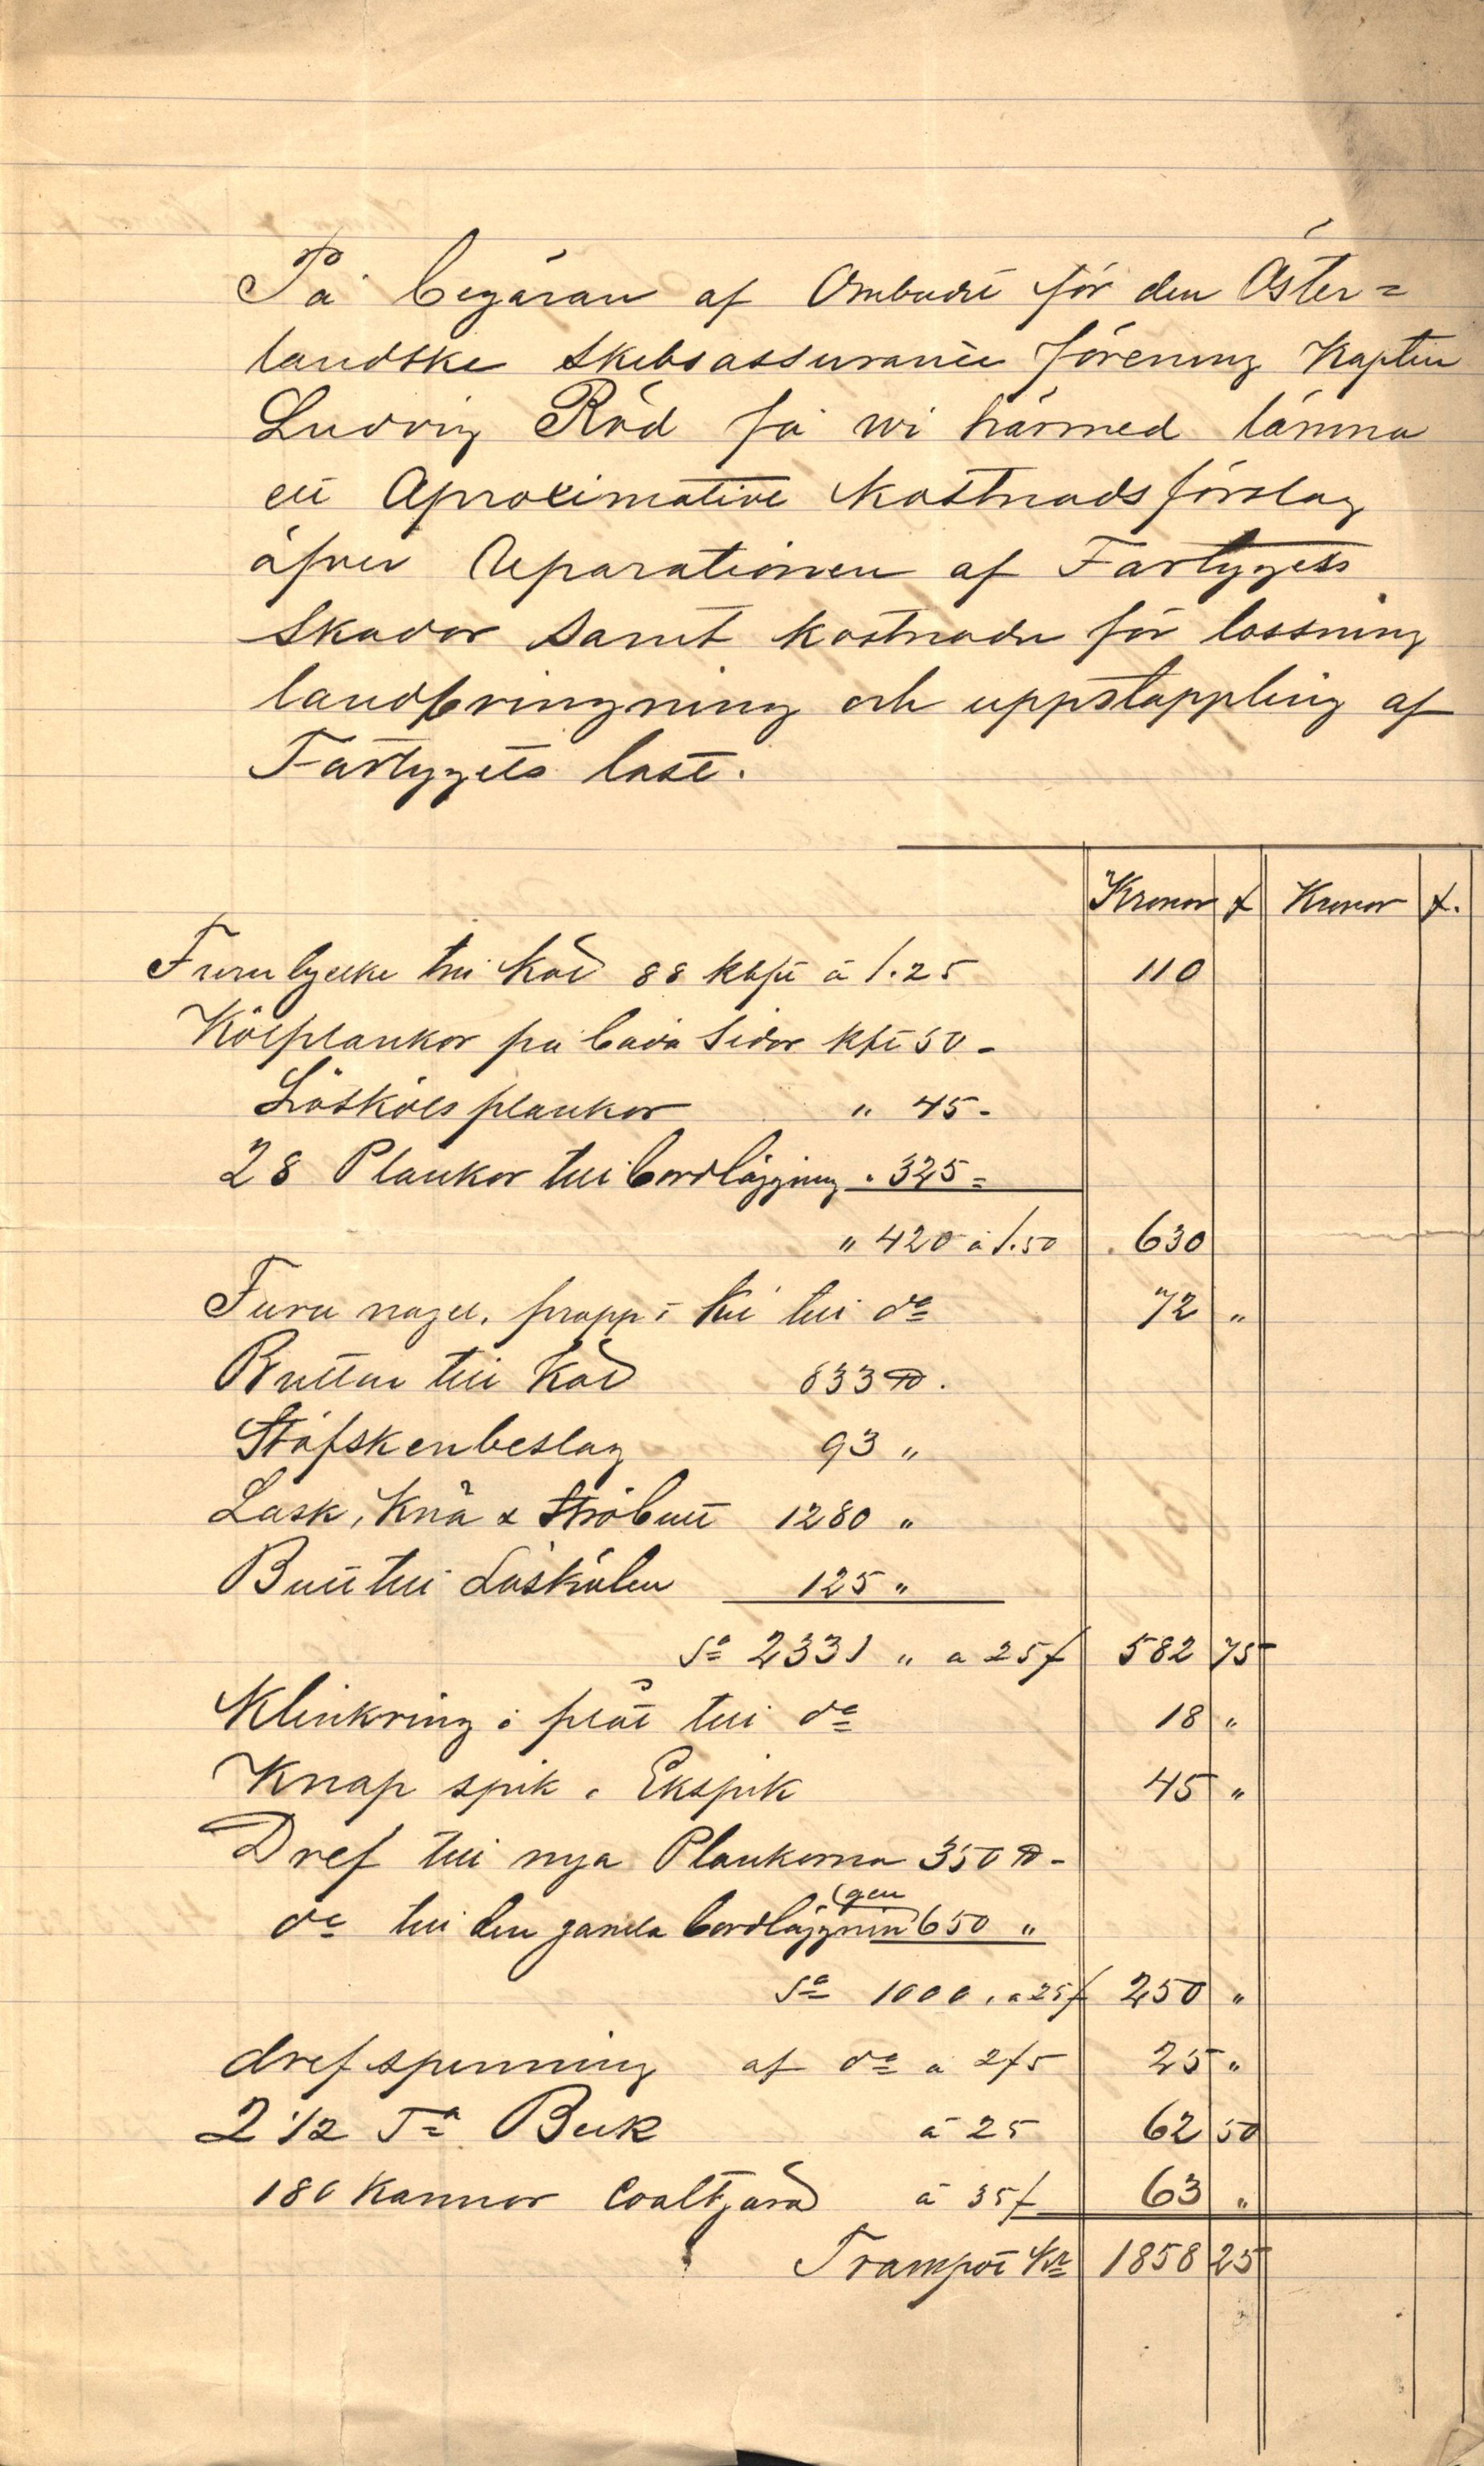 På begäran af Ombudet för den Öster=
landske Skibsassurance förening Kapten
Ludvig Röd få wi härmed lämna
ett Aproximative Kostnadsförslag
öfver Reparationen af Fartygets
Skador samt kostnader för lossning
landbringning och uppstappling af
Fartygets last.
Kronor f Kronor f.
Furu tycke till Köl 88 kbft á 1.25 110
Kölplankor på båda Sidor kft 50 -
Löskölsplankor " 45 -
28 Plankor till bordläggning " 325 =
" 420 á 1.50 630
Furu nagel, propp & till dº 72 "
Bultar till Köl 833 ℔.
Stäfskenbeslag 93 "
Lask, Knä & Ströbult 1280 "
Bult till Löskölen 125 "
Sª 2331 " a 25 f 582 75
Klinkring & plåt till dº 18 "
Knap spik & Ekspik 45 "
Dref till nya Plankorna 350 ℔ -
dº till den gamla bordläggnin(gen 650 "
Sª 1000 " a 25 f 250 "
drefspinning af dº a 2f5 25 "
2 1/2 Tª Bek á 25 62 50
180 Kannor Coaltjära á 35 f 63 "
Transport Kr 1858 25